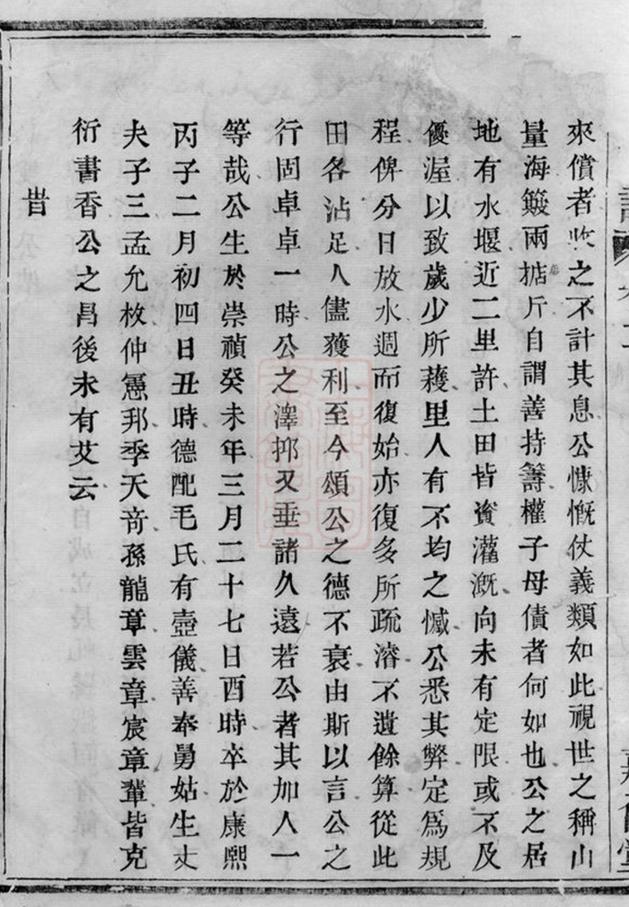 來償者收之不計其息公慷慨仗義類如此視世之稱山
量海鍰兩掂斤自謂善持籌權子母債者何如也公之居
地有水堰近二里許土田皆資灌溉向未有定限或不及
優渥以致歲少所穫里人有不均之憾公悉其弊定為規
程俾分日放水週而復始亦復多所疏濬不遺餘算從此
田各沾足人儘獲利至今頌公之德不衰由斯以言公之
行固卓卓一時公之澤抑又垂諸久遠若公者其加人一
等哉公生於崇禎癸未年三月二十七日酉時卒於康熙
丙子二月初四日丑時德配毛氏有壼儀善奉舅姑生丈
夫子三孟允枚仲憲邦季天奇孫龍章雲章宸章輩皆克
衍書香公之昌後未有艾云
昔